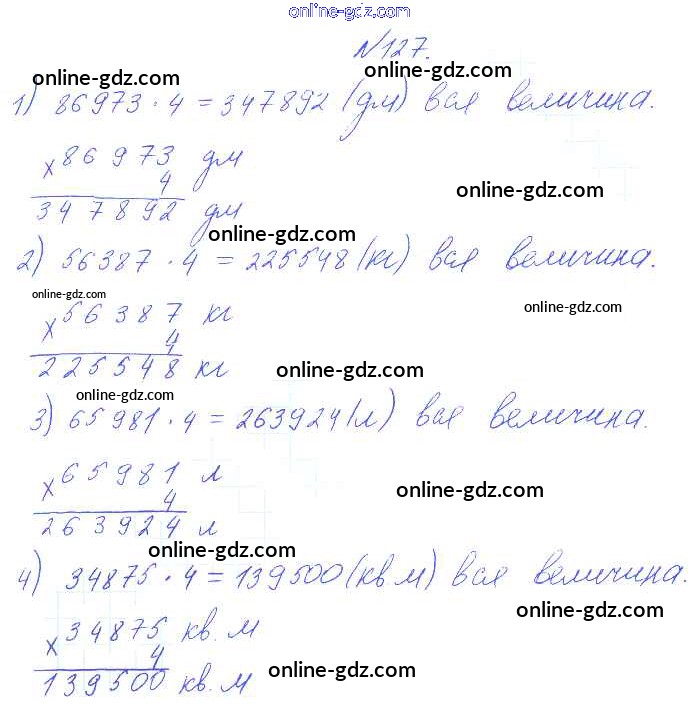 online-gdz.com
№127.
online-gdz.com online-gdz.com
1) 86973 · 4 = 347892 (дм) вся величина.
× 86973 дм
4
online-gdz.com
347892 дм
online-gdz.com
2) 56387 · 4 = 225548 (кг) вся величина.
online-gdz.com
× 56387 кг
online-gdz.com
4
225548 кг
online-gdz.com
online-gdz.com
3) 65981 · 4 = 263924 (л) вся величина.
× 65981 л
4
online-gdz.com
263924 л
online-gdz.com
4) 34875 · 4 = 139500 (кв м) вся величина.
online-gdz.com
× 34875 кв. м
4
online-gdz.com
139500 кв. м